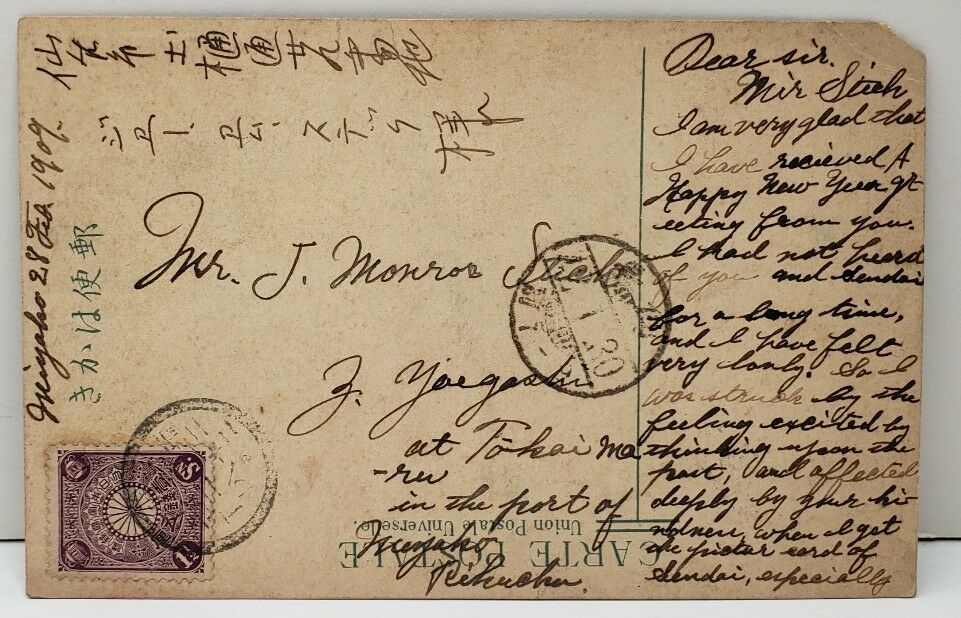 仙台市土樋通
ジェー、エム、ステック 様
Miyako 28 Feb. 1909.
郵便はかき
Mr. J. Monroe
Z. Yaegashi
at Tōkai Ma
-ru
in the port of
Miyako
Rikuchu.
Union Postale Universelle
CARTE POSTALE
Dear sir.
Mir Stick
I am very glad that
I have recieved A
Happy New Year gr
eeting from you.
I had not heard
of you and Sendai
for a long time,
and I have felt
very lonly. So I
was struck by the
feeling excited by
thinking upon the
past, and affected
deeply by your ki-
ndness, when I get
the pictur card of
Sendai, especially